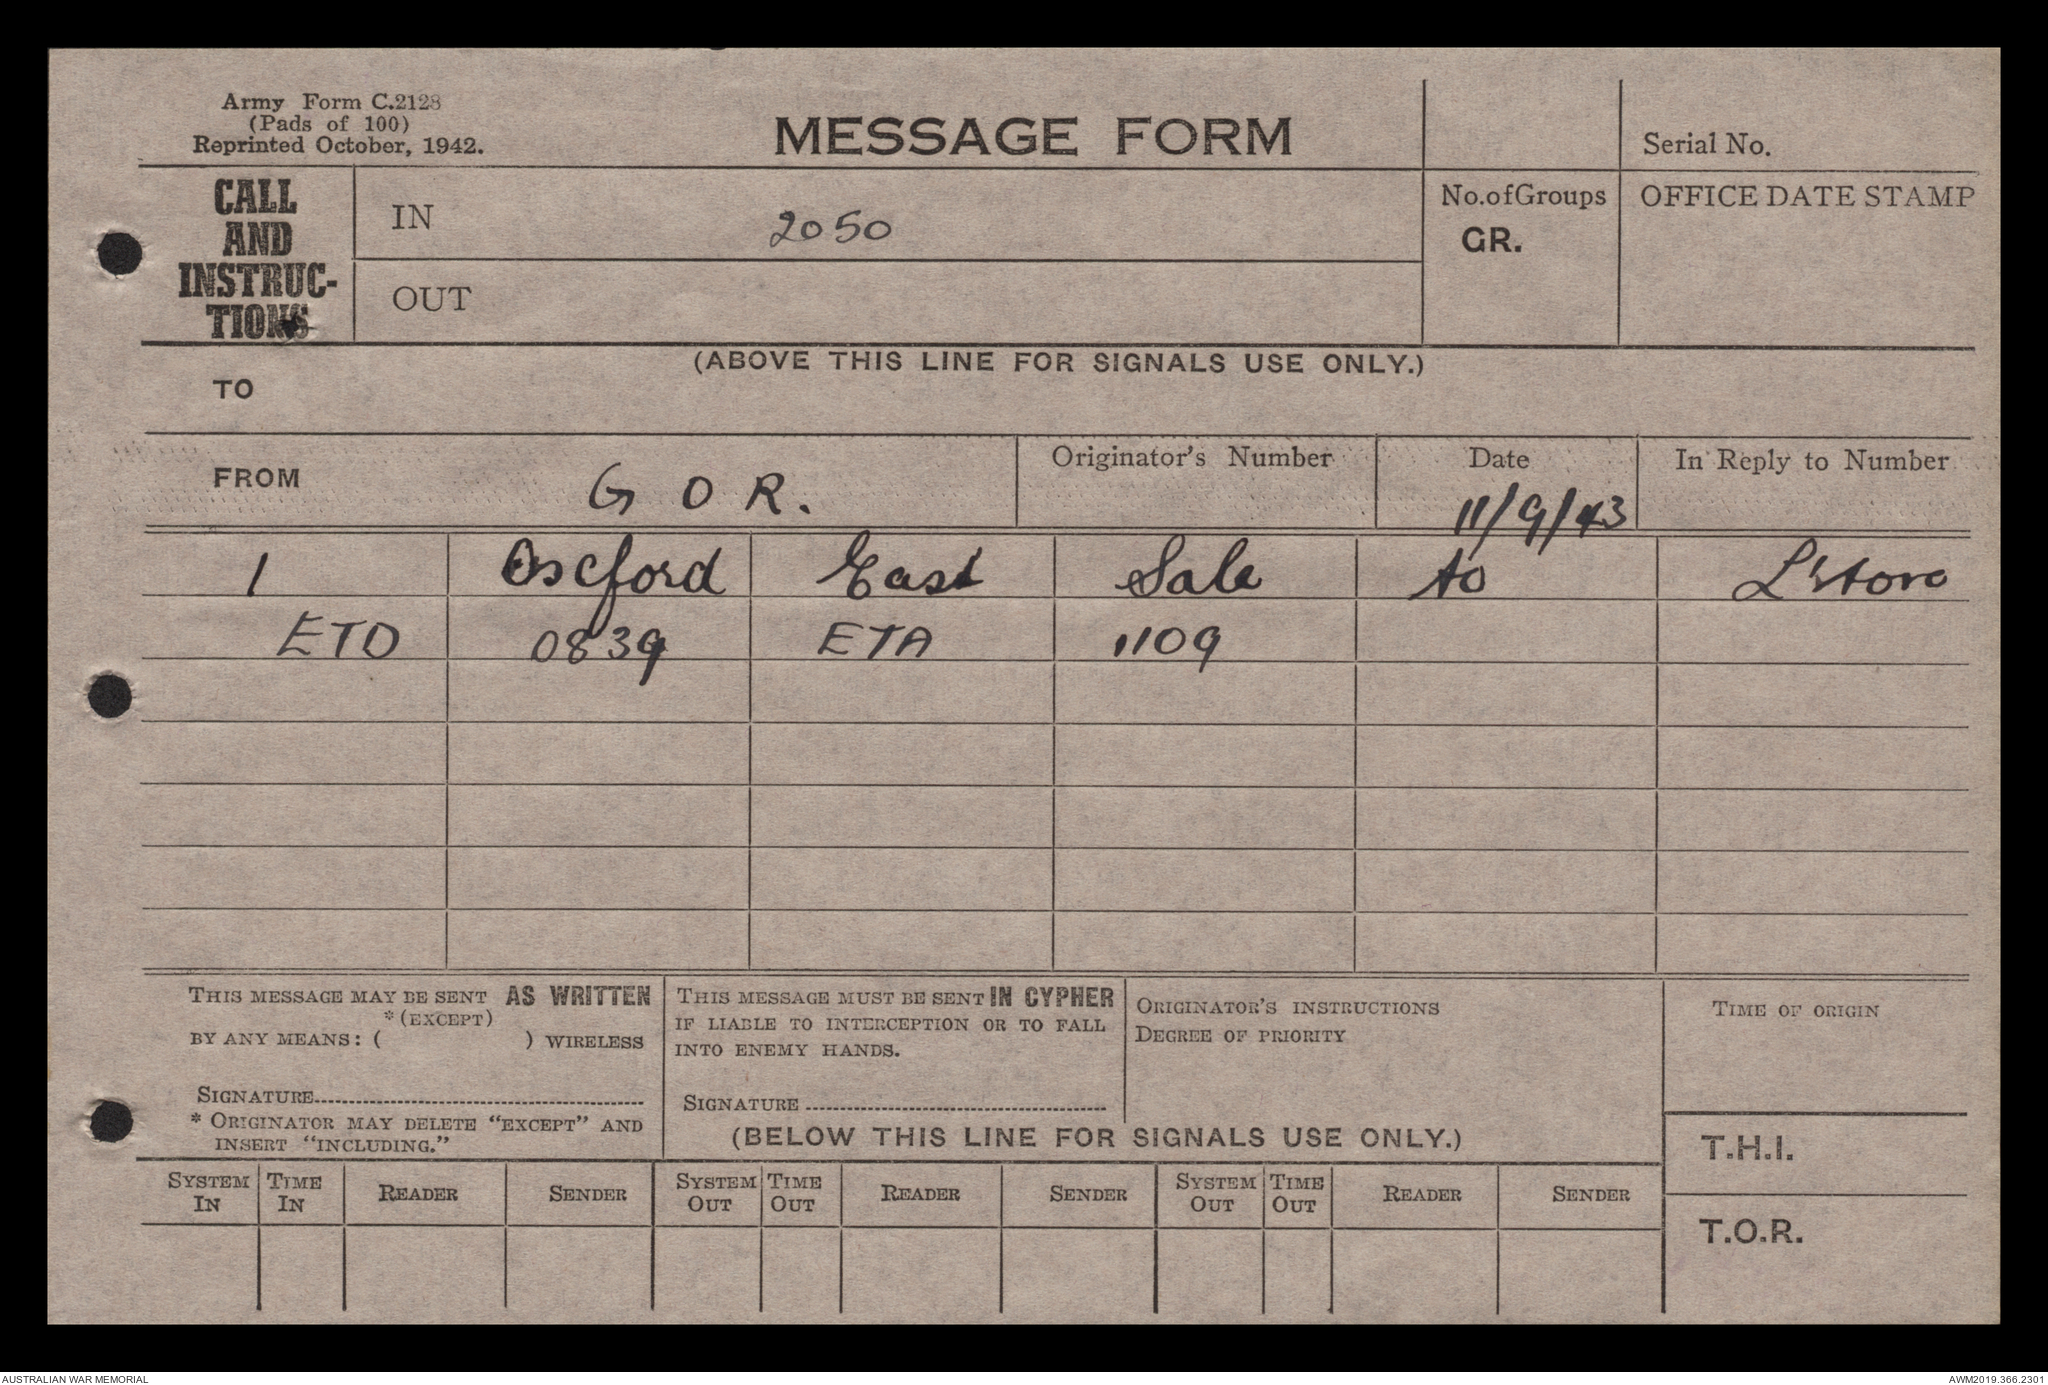 Army Form C.2128
(Pads of 100)
Reprinted October, 1942.
MESSAGE FORM
Serial No.
CALL
AND
INSTRUC-
TIONS
IN 2050
OUT
No. of Groups
GR.
OFFICE DATE STAMP
(ABOVE THIS LINE FOR SIGNALS USE ONLY.)
TO
FROM G O R.
Originator's Number
Date
11/9/43
In Reply to Number
1 Oxford East Sale to L'ton
ETD 0839 ETA 1109
THIS MESSAGE MAY BE SENT AS WRITTEN
*(EXCEPT)
BY ANY MEANS: ( ) WIRELESS
SIGNATURE
* ORIGINATOR MAY DELETE "EXCEPT" AND
INSERT "INCLUDING."
THIS MESSAGE MUST BE SENT IN CYPHER
IF LIABLE TO INTERCEPTION OR TO FALL
INTO ENEMY HANDS.
SIGNATURE
ORIGINATOR'S INSTRUCTIONS
DEGREE OF PRIORITY
TIME OF ORIGIN
(BELOW THIS LINE FOR SIGNALS USE ONLY.)
T.H.I.
SYSTEM IN TIME IN READER SENDER SYSTEM OUT TIME OUT READER SENDER SYSTEM OUT TIME OUT READER SENDER
T.O.R.
AUSTRALIAN WAR MEMORIAL
AWM2019.366.2301